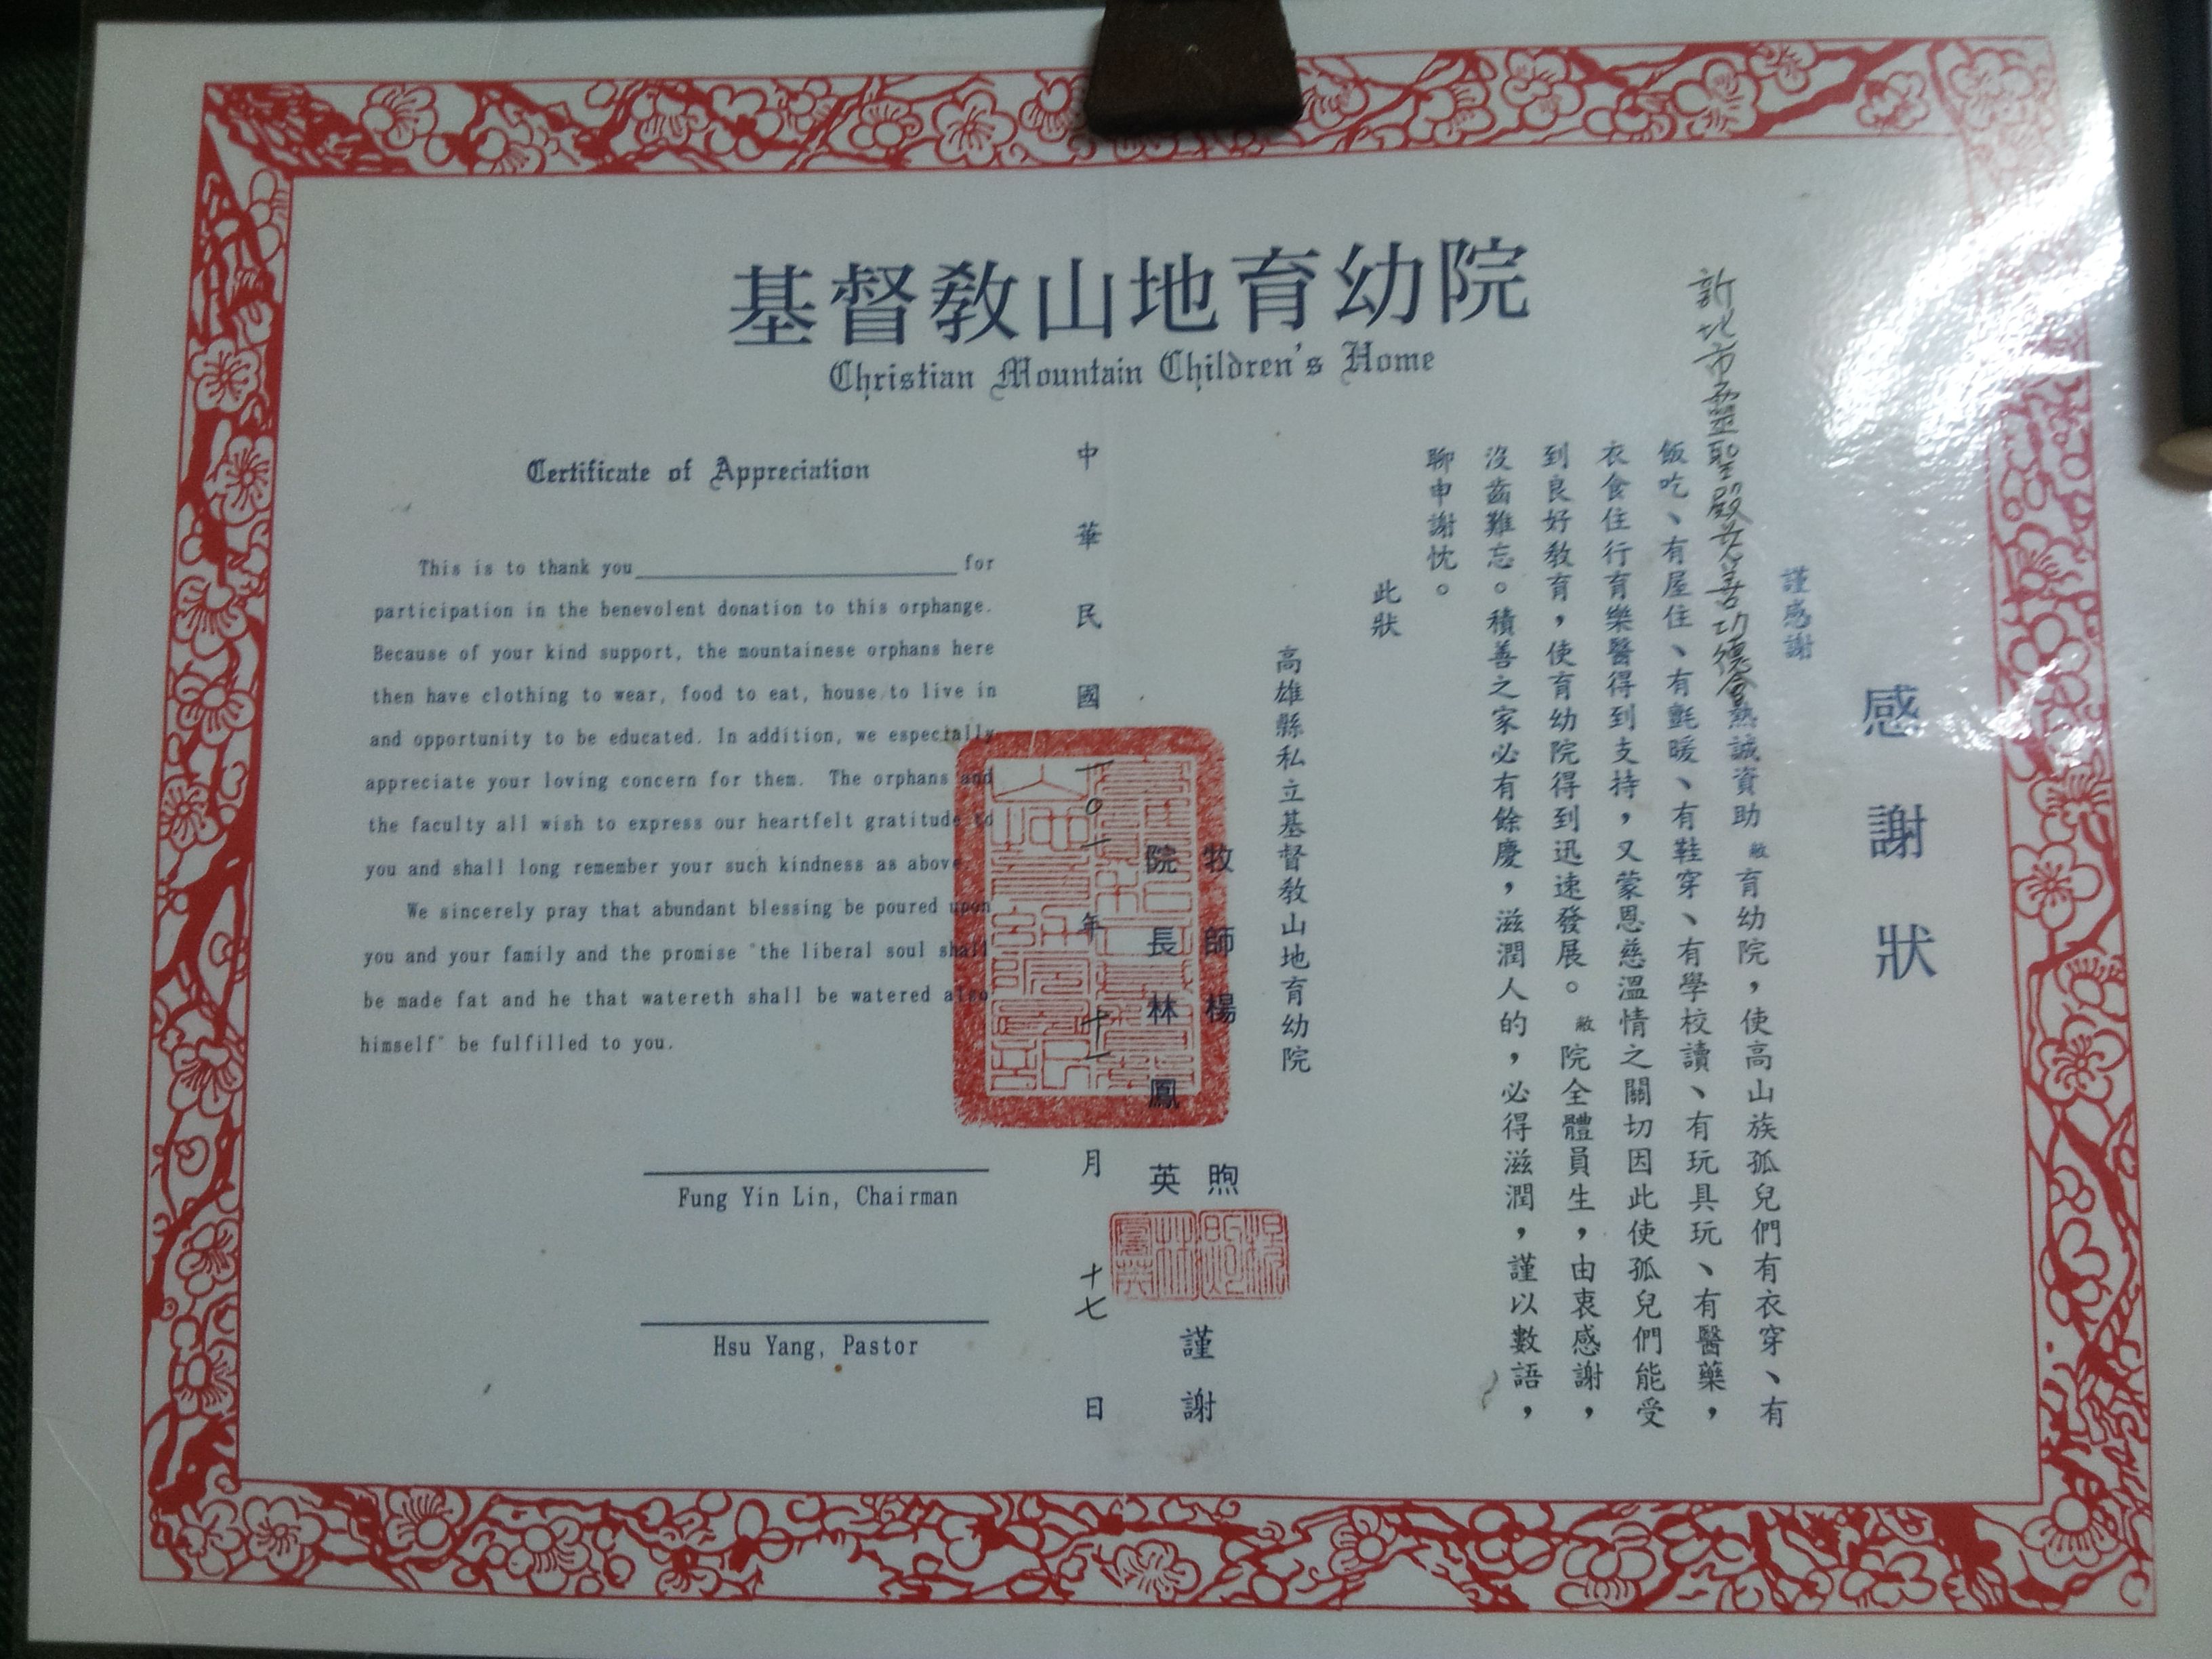 基督教山地育幼院
Christian Mountain Children's Home
感謝狀
謹感謝
新北市五靈聖殿慈善功德會熱誠資助 敝 育幼院，使高山族孤兒們有衣穿、有
飯吃、有屋住、有氈暖、有鞋穿、有學校讀、有玩具玩、有醫藥，
衣食住行育樂醫得到支持，又蒙恩慈溫情之關切因此使孤兒們能受
到良好教育，使育幼院得到迅速發展。敝院全體員生，由衷感謝，
沒齒難忘。積善之家必有餘慶，滋潤人的，必得滋潤，謹以數語，
聊申謝忱。
此狀
高雄縣私立基督教山地育幼院
牧師 楊煦
院長 林鳳英
謹謝
中華民國一〇一年十一月十七日
Certificate of Appreciation
This is to thank you for
participation in the benevolent donation to this orphange.
Because of your kind support, the mountainese orphans here
then have clothing to wear, food to eat, house to live in
and opportunity to be educated. In addition, we especially
appreciate your loving concern for them. The orphans and
the faculty all wish to express our heartfelt gratitude to
you and shall long remember your such kindness as above.
We sincerely pray that abundant blessing be poured upon
you and your family and the promise "the liberal soul shall
be made fat and he that watereth shall be watered also
himself" be fulfilled to you.
Fung Yin Lin, Chairman
Hsu Yang, Pastor